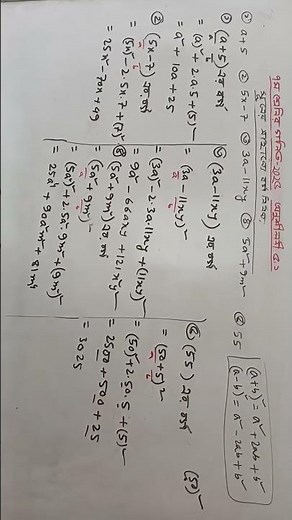 ৭ম শ্রেণির গণিত-২০২৫ অনুশীলনী ৫.১
সূত্রের সাহায্যে বর্গ নির্ণয়:
① a+5 ② 5x-7 ③ 3a-11xy ④ 5a²+9m² ⑤ 55
(a+b)² = a²+2ab+b²
(a-b)² = a²-2ab+b²
① (a+5) এর বর্গ
= (a)²+2.a.5+(5)²
= a²+10a+25
② (5x-7) এর বর্গ
= (5x)²-2.5x.7+(7)²
= 25x²-70x+49
③ (3a-11xy) এর বর্গ
= (3a-11xy)²
= (3a)²-2.3a.11xy+(11xy)²
= 9a²-66axy+121x²y²
④ (5a²+9m²) এর বর্গ
= (5a²+9m²)²
= (5a²)²+2.5a².9m²+(9m²)²
= 25a⁴+90a²m²+81m⁴
⑤ (55) এর বর্গ
= (50+5)²
= (50)²+2.50.5+(5)²
= 2500+500+25
= 3025